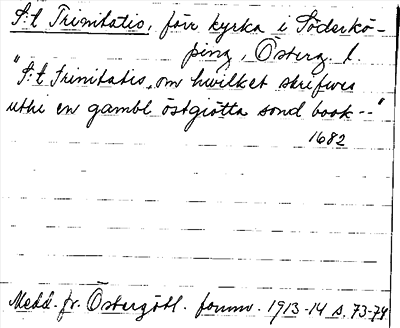 S:t Trinitatis, förr kyrka i Söderkö-
ping, Österg. l.
"S:t Trinitatis, om hwilket skrifwes
uthi en gambl östgiötta sond book--"
1682
Medd. fr. Östergötl. fornmv. 1913-14 s. 73-74